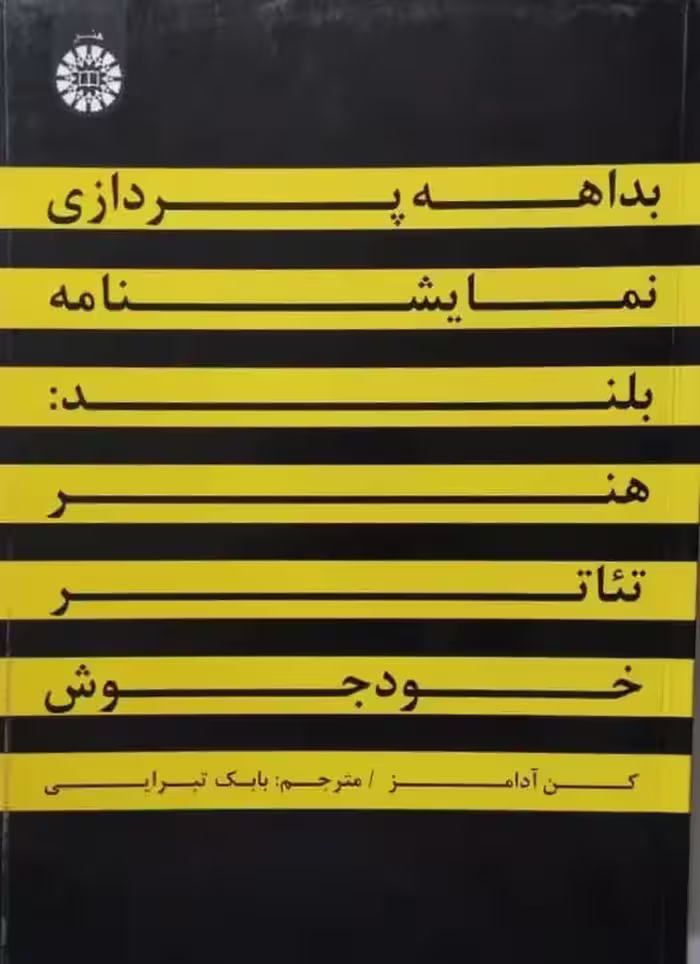 هنر
بداهه پردازی
نمایشنامه
بلند:
هنر
تئاتر
خودجوش
کن آدامز / مترجم: بابک تبرایی